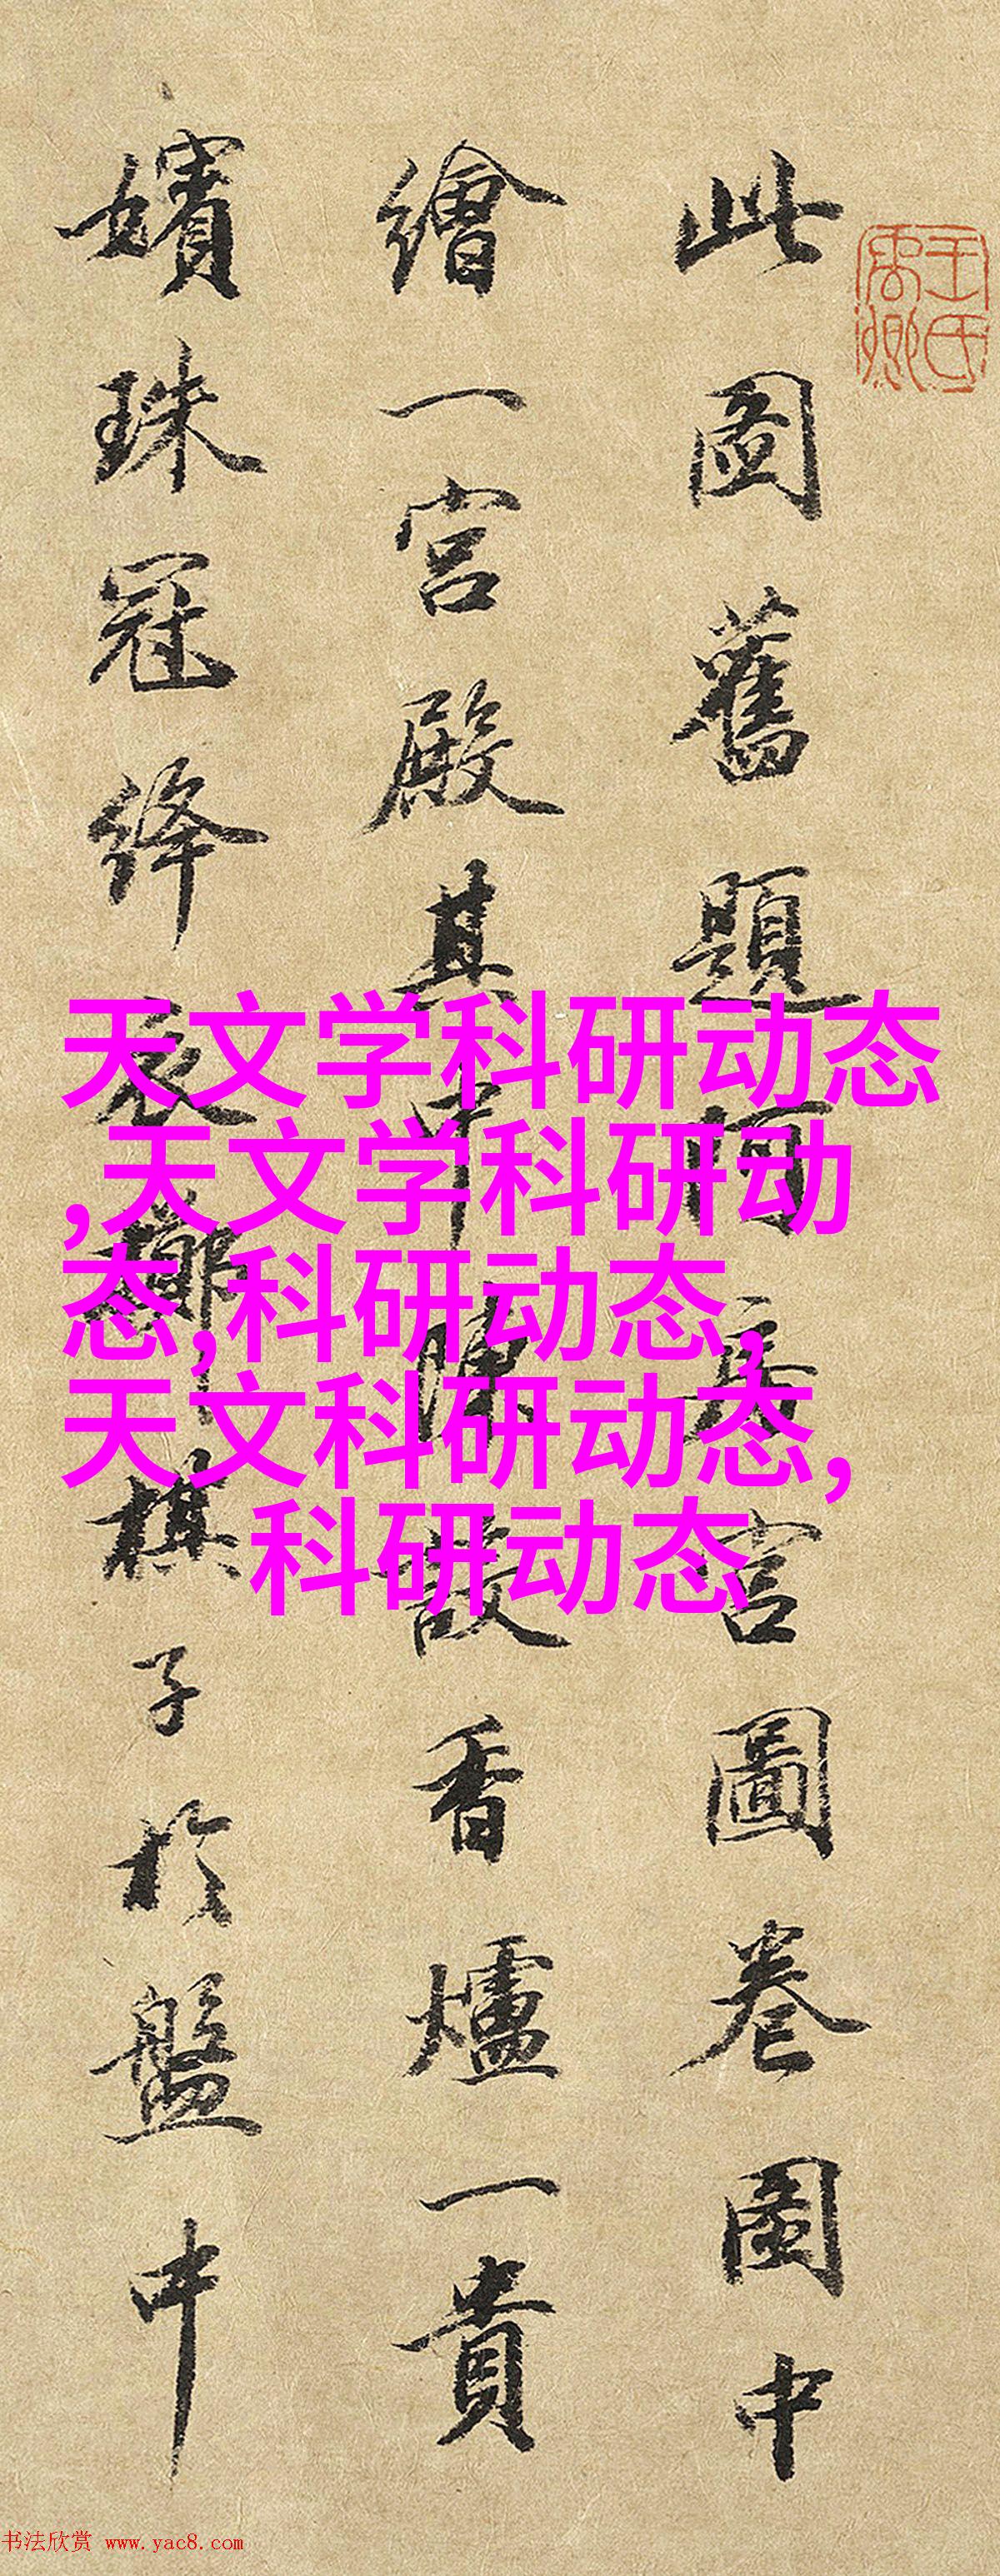 此圖舊題阿房宮圖卷圖中
繪一宮殿其中陳設香爐一貴
嬪珠冠絳衣擲棋子於盤中
王氏禹卿
天文学科研动态
,天文学科研动
态,科研动态,
天文科研动态,
科研动态
书法欣赏 www.yac8.com